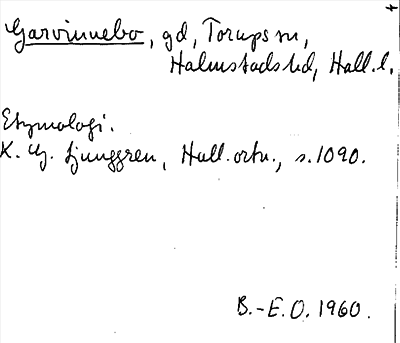 Garvinnebo, gd, Torups sn,
Halmstads hd, Hall. l.
Etymologi.
K. G. Ljunggren, Hall. ortn., s. 1090.
B.-E.O. 1960.